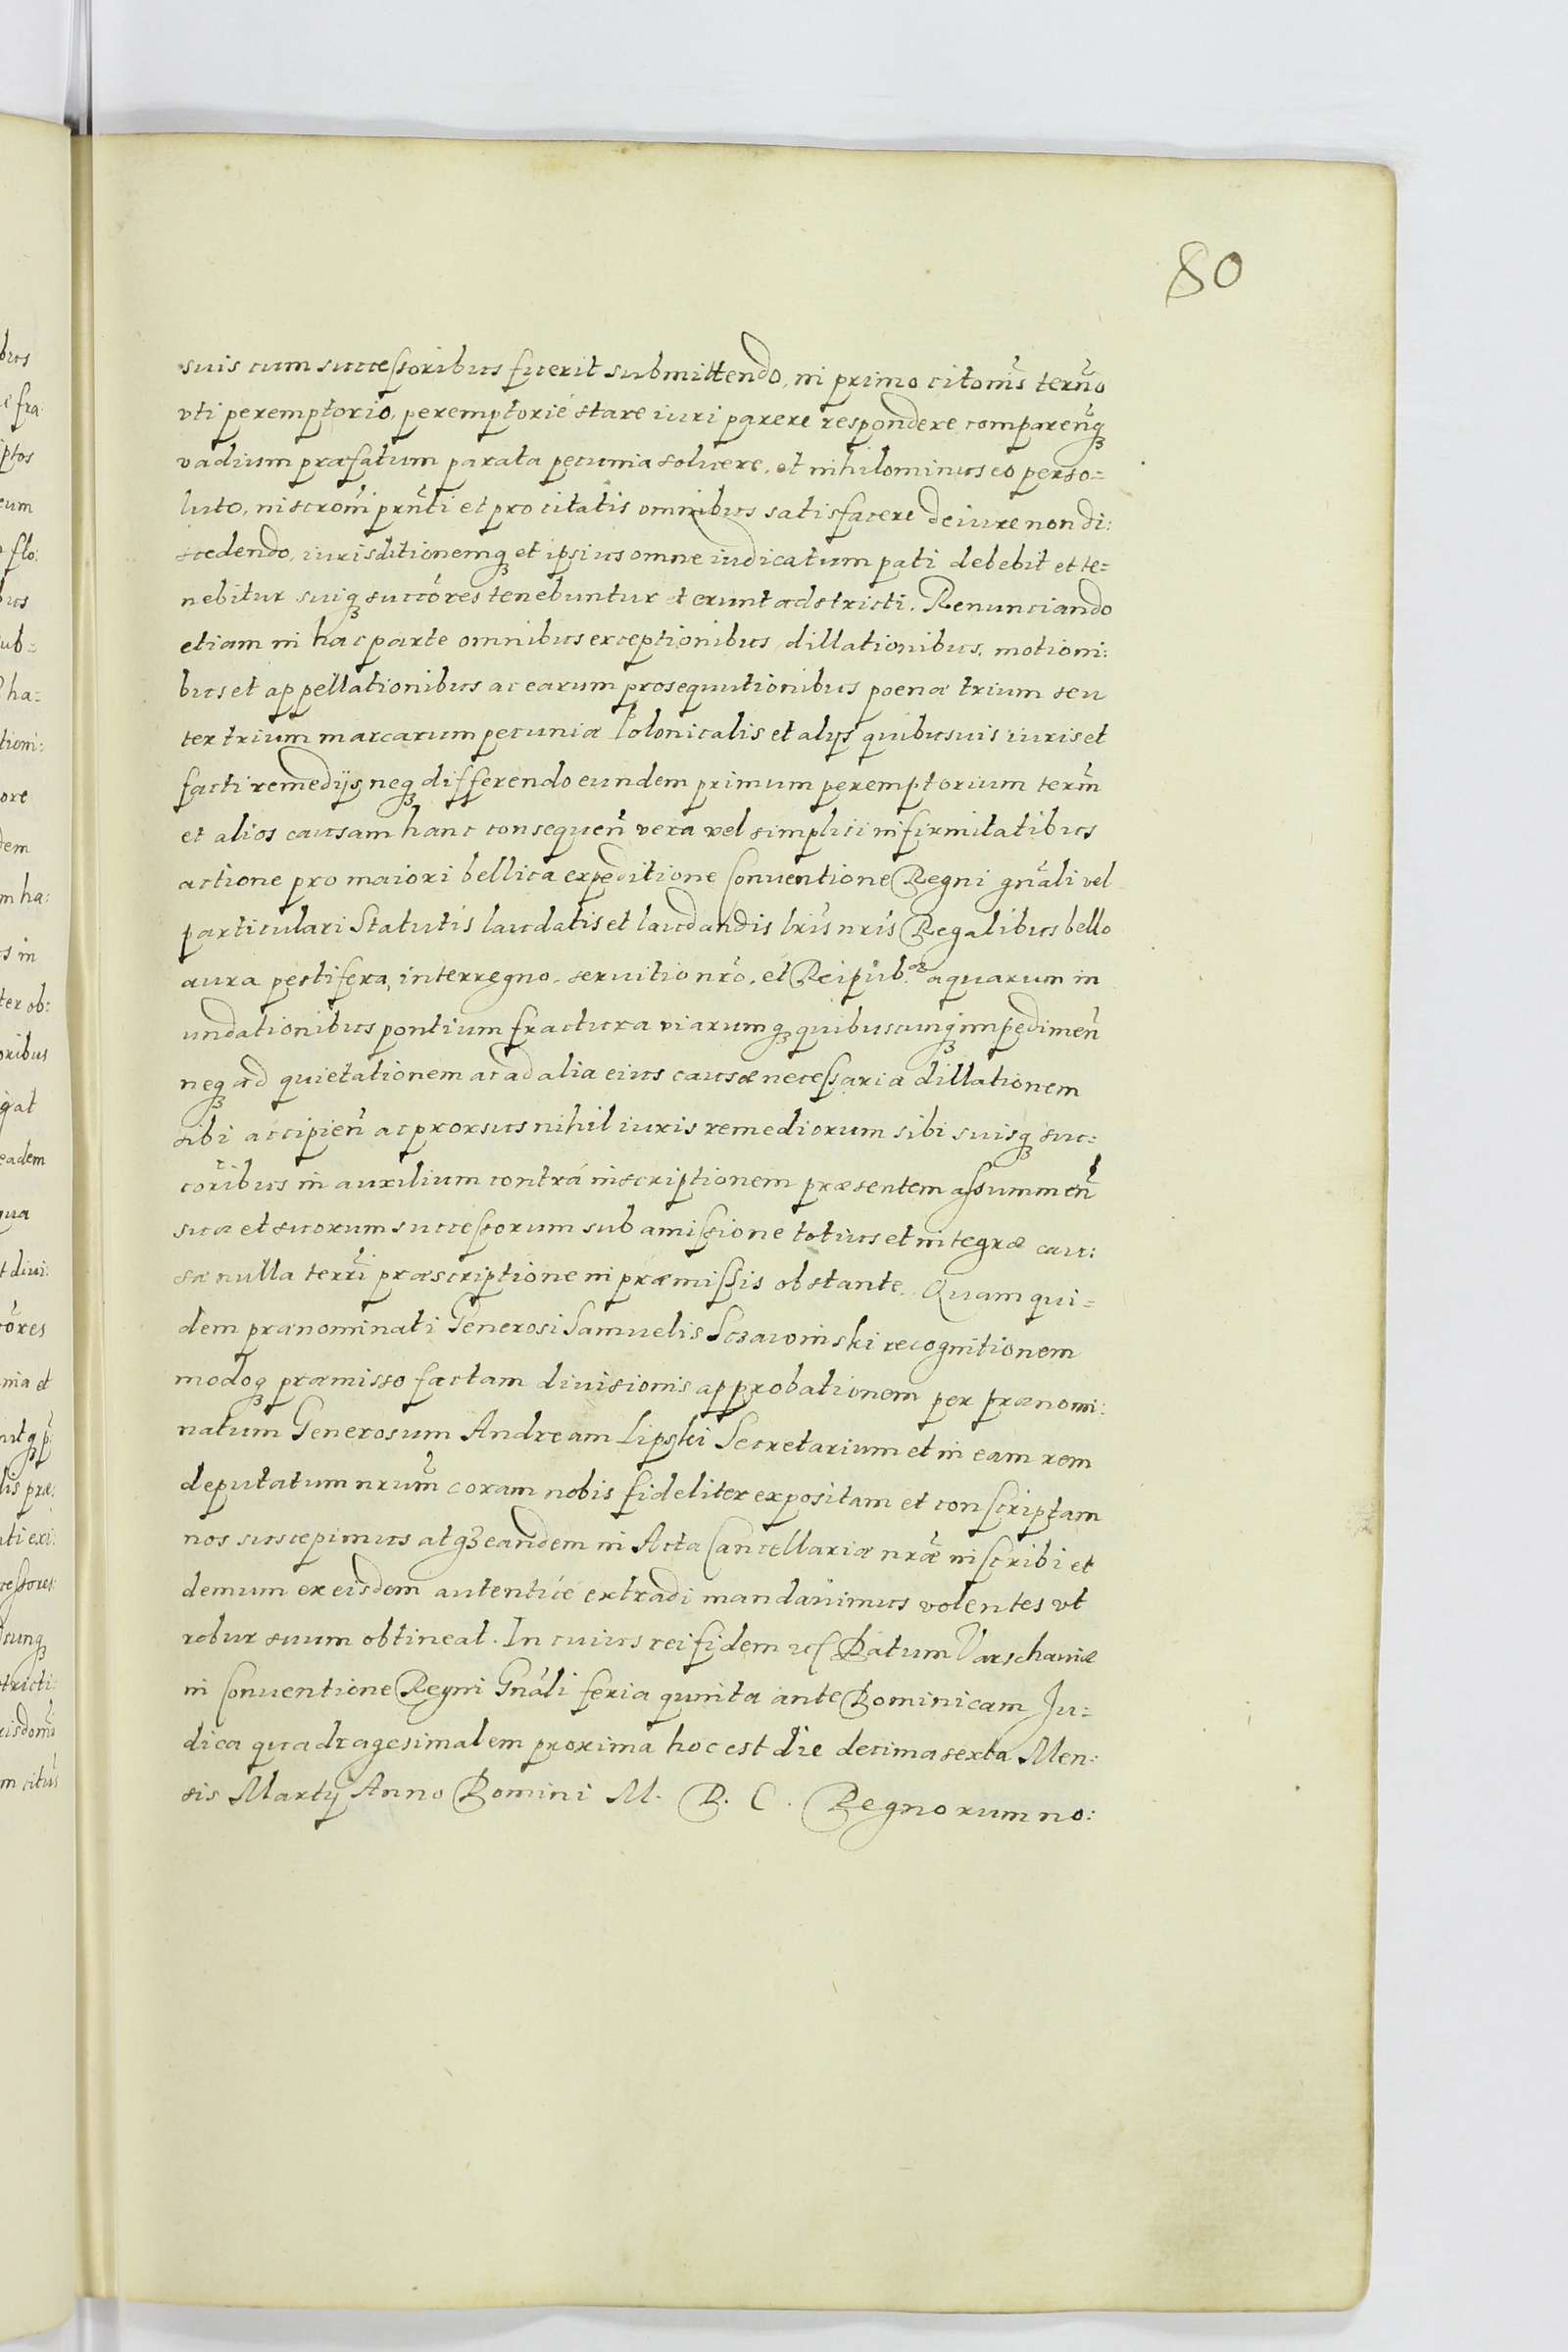 80
suis cum successoribus fuerit submittendo, in primo citonis̃ terño
vti peremptorio, peremptorie stare iuri parere respondere compareñq
vadium præfatum parata pecunia soluere, et nihilominus eo perso=
luto, inscrom̃ prñti et pro citatis omnibus satisfacere de iure non di:
scedendo, iurisditionemq et ipsius omne iudicatum pati debebit et te=
nebitur suiq succõres tenebuntur et erunt adstricti. Renunciando
etiam in hac parte omnibus exceptionibus, dillationibus, motioni:
bus et appellationibus ac earum prosequutionibus poena trium seu
ter trium marcarum pecuniæ Polonicalis et alijs quibusuis iuris et
facti remedijs neq differendo eundem primum peremptorium term̃
et alios causam hanc consequeñ vera vel simplici infirmitatibus
actione pro maiori bellica expeditione Conuentione Regni gñali vel
particulari Statutis laudatis et laudandis lris̃ nris̃ Regalibus bello
aura pestifera, interregno, seruitio nrõ, et Reipub.æ aquarum in
undationibus pontium fractura viarumq quibuscunq impedimeñ
neq ad quietationem ac ad alia eius causæ necessaria dillationem
sibi accipieñ ac prorsus nihil iuris remediorum sibi suisq suc:
cõribus in auxilium contrá inscriptionem præsentem assummeñ
sua et suorum successorum sub amissione totius et integræ cau:
sæ nulla terrĩ præscriptione in præmissis obstante. Quam qui=
dem prænominati Generosi Samuelis Sczawinski recognitionem
modoq præmisso factam diuisionis approbationem per prænomi:
natum Generosum Andream Lipski Secretarium et in eam rem
deputatum nrum̃ coram nobis fideliter expositam et conscriptam
nos suscepimus atq eandem in Acta Cancellariæ nræ̃ inscribi et
demum ex eisdem autenticé extradi mandauimus volentes vt
robur suum obtineat. In cuius rei fidem Datum Varschauiæ
in Conuentione Regni Gñali feria quinta ante Dominicam Ju=
dica quadragesimalem proxima hoc est die decima sexta Men:
sis Martij Anno Domini M. D. C. Regnorum no: